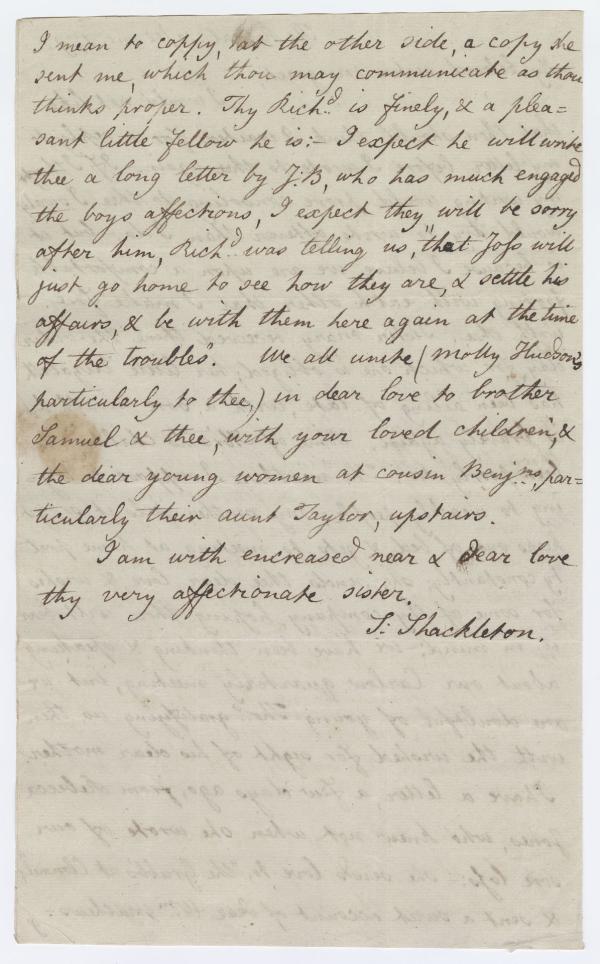 I mean to coppy, at the other side, a copy she
sent me, which thou may communicate as thou
thinks proper. Thy Richd. is finely, & a plea=
sant little fellow he is:- I expect he will write
thee a long letter by J:B, who has much engaged
the boys affections, I expect they will be sorry
after him, Richd. was telling us, "that Joss will
just go home to see how they are, & settle his
affairs, & be with them here again at the time
of the troubles". We all unite (Molly Hudson's
particularly to thee,) in dear love to brother
Samuel & thee, with your loved children, &
the dear young women at cousin Benjns, par=
ticularly their aunt Taylor, upstairs.
I am with encreased near & dear love
thy very affectionate sister.
S: Shackleton.